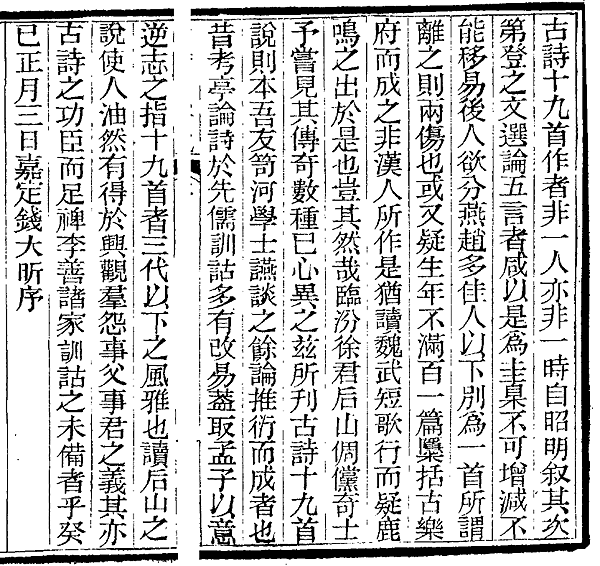 古詩十九首作者非一人亦非一時自昭明叙其次
第登之文選論五言者咸以是爲圭臬不可增減不
能移易後人欲分燕趙多佳人以下別爲一首所謂
離之則兩傷也或又疑生年不滿百一篇檃括古樂
府而成之非漢人所作是猶讀魏武短歌行而疑鹿
鳴之出於是也豈其然哉臨汾徐君后山倜儻奇士
予嘗見其傳奇數種已心異之兹所刊古詩十九首
說則本吾友笥河學士讌談之餘論推衍而成者也
昔考亭論詩於先儒訓詁多有改易葢取孟子以意
逆志之指十九首者三代以下之風雅也讀后山之
說使人油然有得於興觀羣怨事父事君之義其亦
古詩之功臣而足裨李善諸家訓詁之未備者乎癸
巳正月三日嘉定錢大昕序